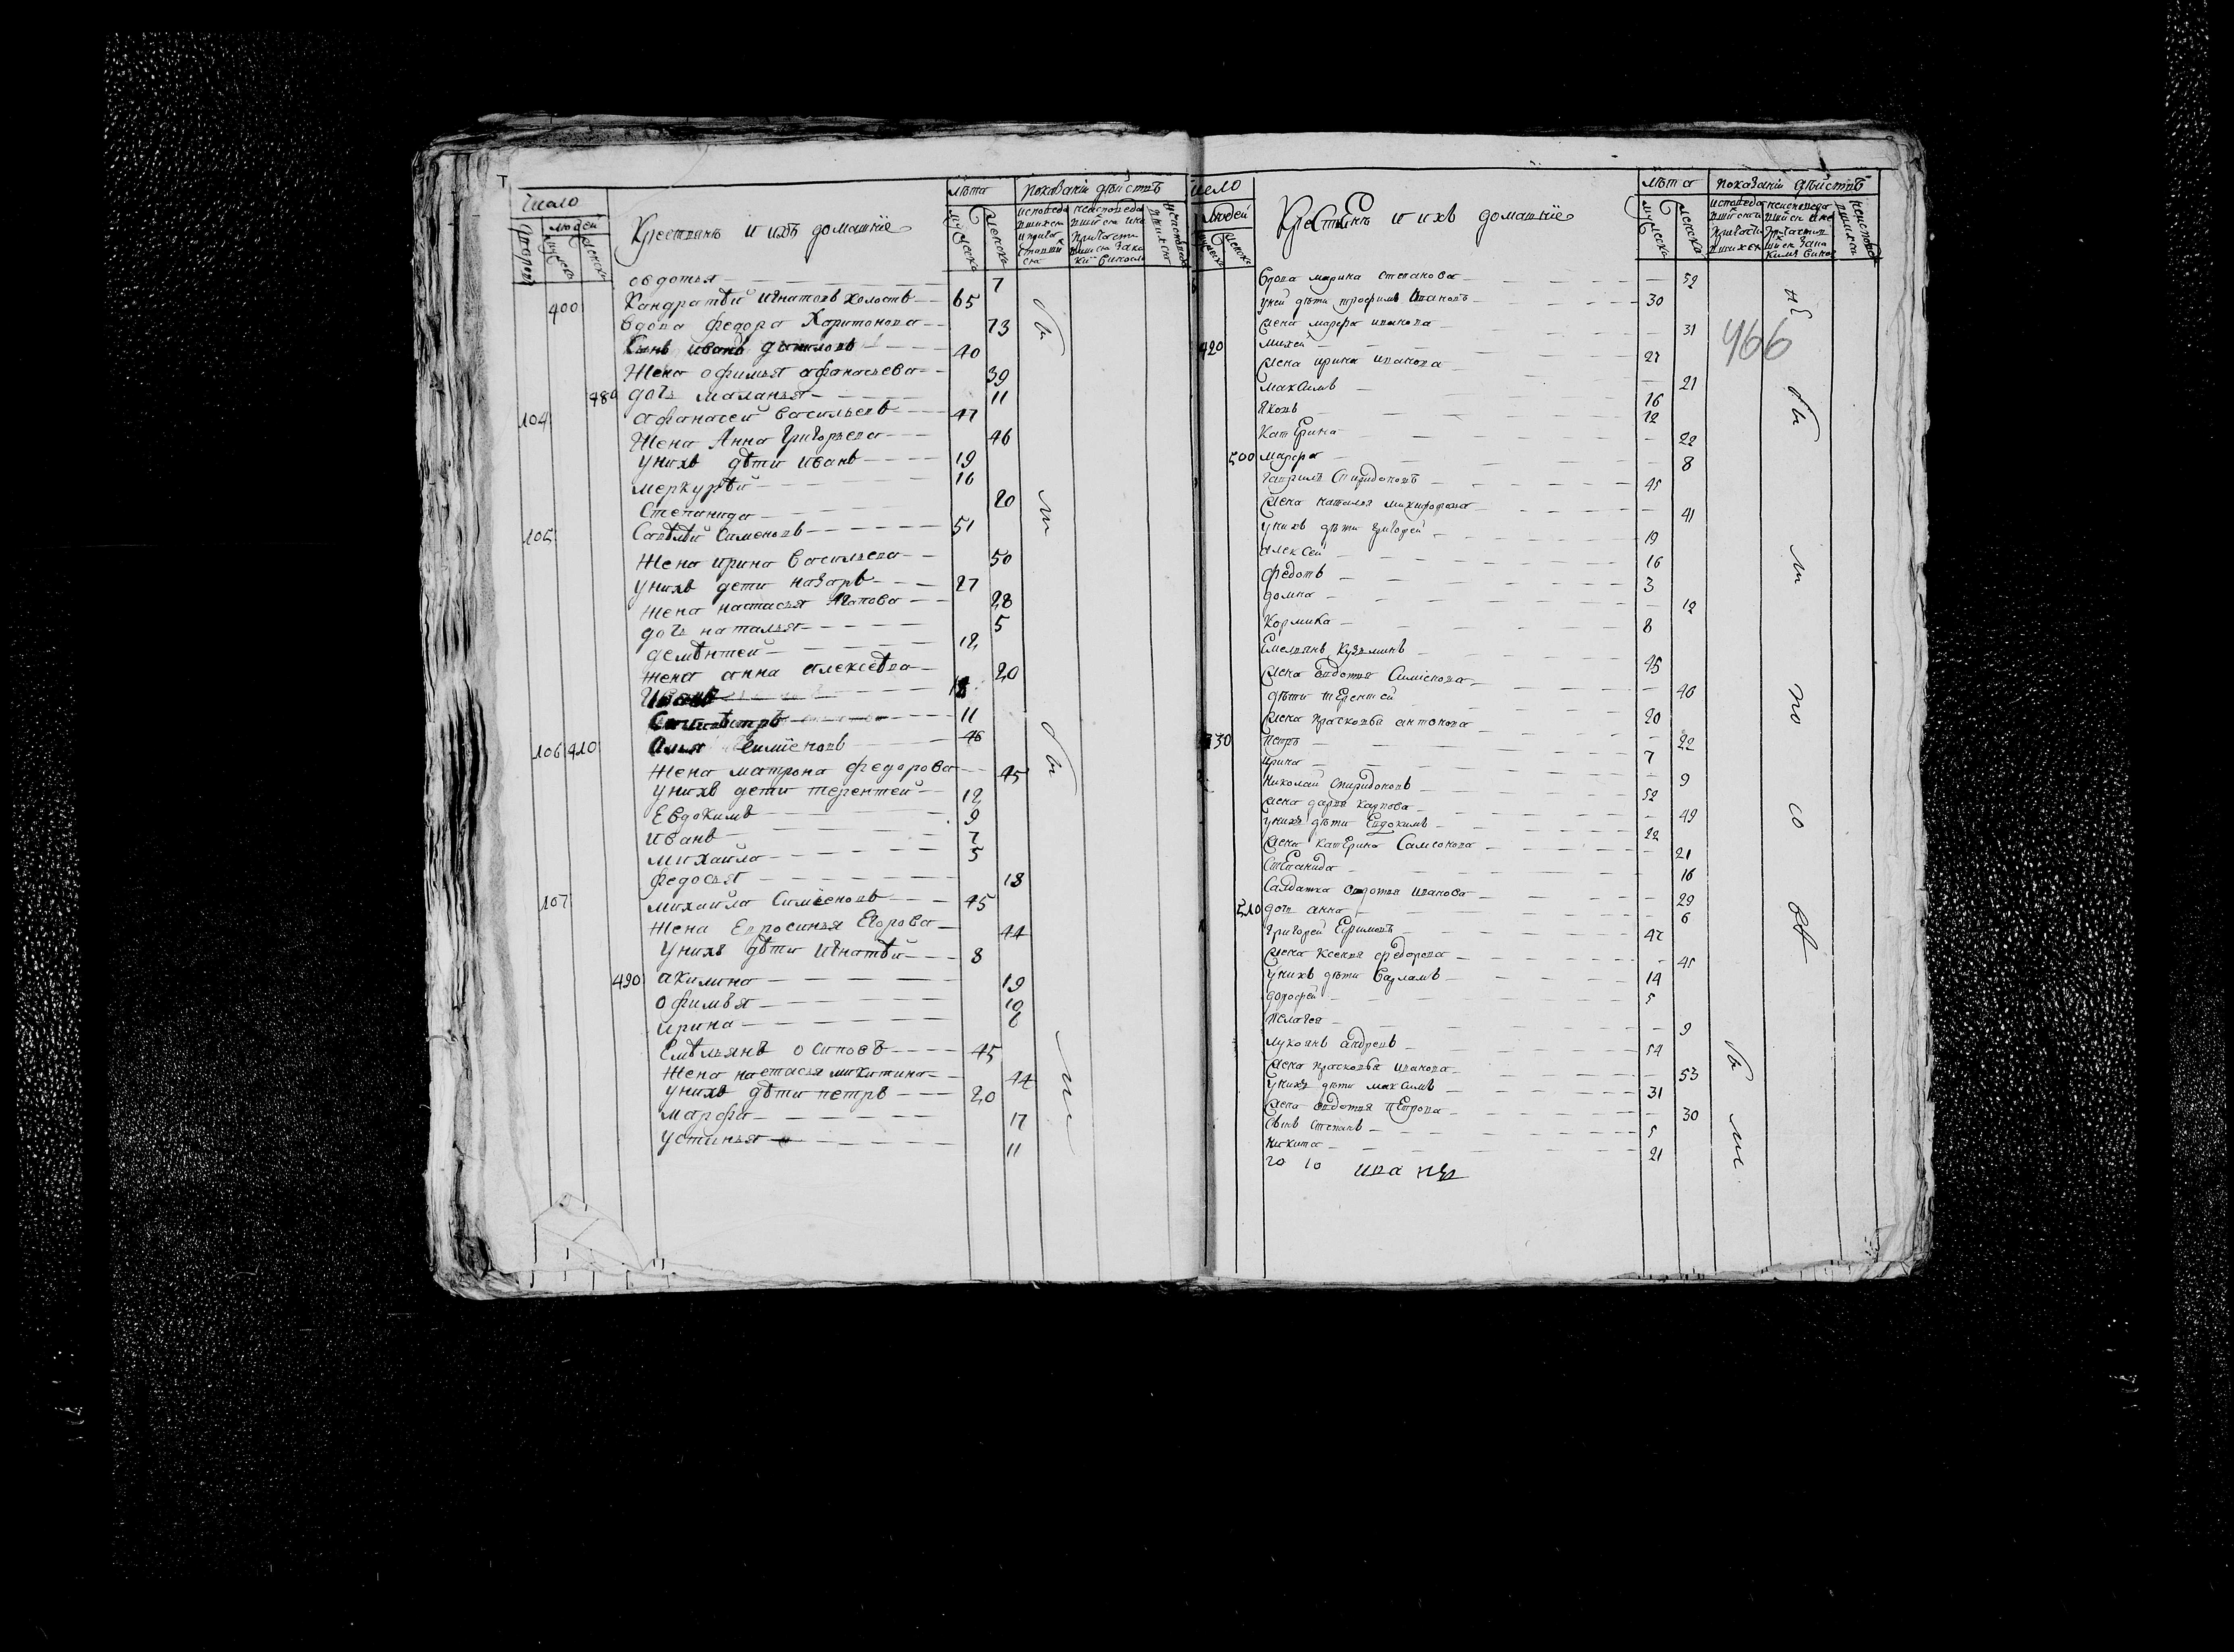 Число
людей
Дворовъ
мужеска
женска
Крестьянъ и ихъ домашніе
лѣта
мужеска
женска
показаніи дѣйствъ
овдотья 7
400 Кандратѣй игнатовъ холостъ 65
вдова федора Харитонова 73
Сынъ иванъ даниловъ 40
Жена офимья афанасьева 39
480 дочь маланья 11
104 афанасей васильевъ 47
Жена Анна григорьева 46
унихъ дѣти иванъ 19
меркурѣй 16
Степанида 20
105 Савѣлѣй Сименовъ 51
Жена ирина васильева 50
унихъ дети назаръ 27
Жена настасья Агапова 28
дочь наталья 5
деменѣтей 12
жена анна алексѣева 20
Иванъ
Силивѣстръ 11
106 410 Симіеновъ 46
Жена матрона федорова 45
унихъ дети терентей 12
Евдокимъ 9
иванъ 7
михайла 5
федосья 13
107 михайла Симіеновъ 45
Жена Евросинья Егорова 44
унихъ дѣти игнатѣй 8
490 акилина 19
офимья 10
ирина 6
Емѣльянъ осиповъ 45
Жена настасья микитина 44
унихъ дѣти петръ 20
марфа 17
устинья 11
Число
людей
мужеска
женска
Крестьянъ и ихъ домашніе
лѣта
мужеска
женска
показаніи дѣйствъ
466
вдова марина степанова 52
уней дѣти трофимъ ивановъ 30
жена марфа иванова 31
420 михей 27
жена ирина иванова 21
максимъ 16
яковъ 12
катерина 22
500 марфа 8
гаврилъ Спиридоновъ 45
жена наталья микифорова 41
унихъ дѣти григорей 19
алексей 16
федотъ 3
домна 12
Кормика 8
Емельянъ Кузьминъ 45
жена авдотья Симіенова 40
дѣти терентей 20
жена прасковья антонова 22
430 петръ 7
ирина 9
николай спиридоновъ 52
жена дарья карпова 49
унихъ дѣти Евдокимъ 22
жена катерина Самсонова 21
степанида 16
Салдатка овдотья иванова 29
510 дочь анна 6
григорей Ефимовъ 47
жена ксенья федорова 45
унихъ дѣти варламъ 14
дорофей 5
пелагея 9
лукоянъ андреевъ 54
жена прасковья иванова 53
унихъ дѣти максимъ 31
жена авдотья петрова 30
сынъ степанъ 5
никита 21
20 10